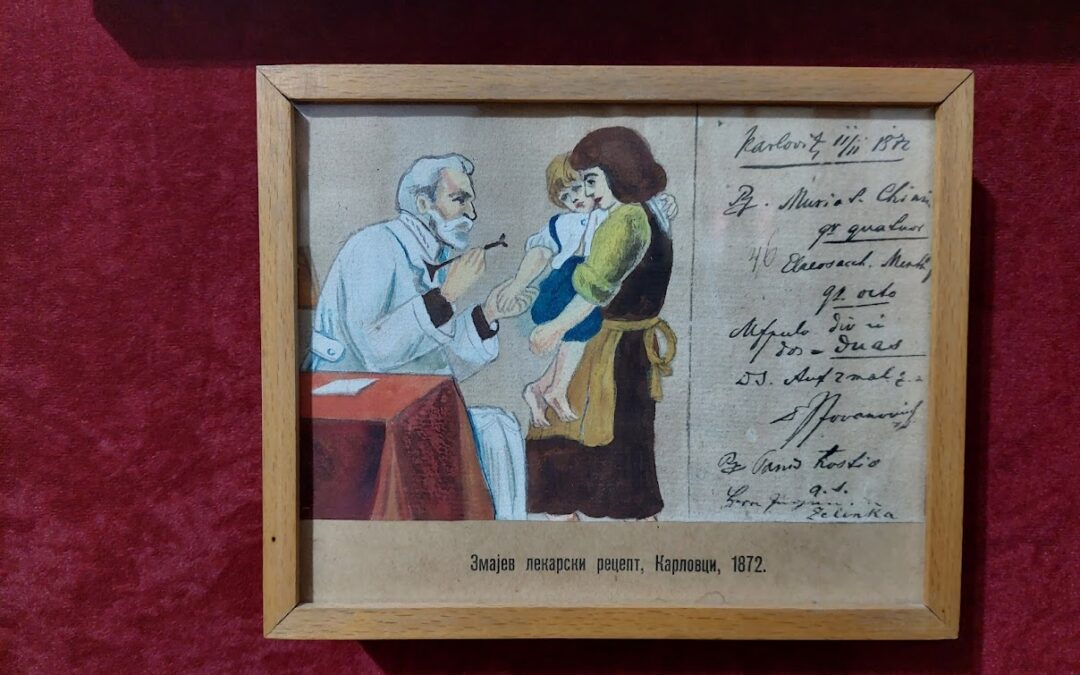 Karlovitz 11/II 1872
Rp. Muriat. Chinin
gr quatuor
46 Elaeosacch. Menth
gr. octo
div in
dos = duas
DS. Auf 2mal z
D Jovanovich
Rp Panis Tosti
q. s.
Zelinka
Змајев лекарски рецепт, Карловци, 1872.